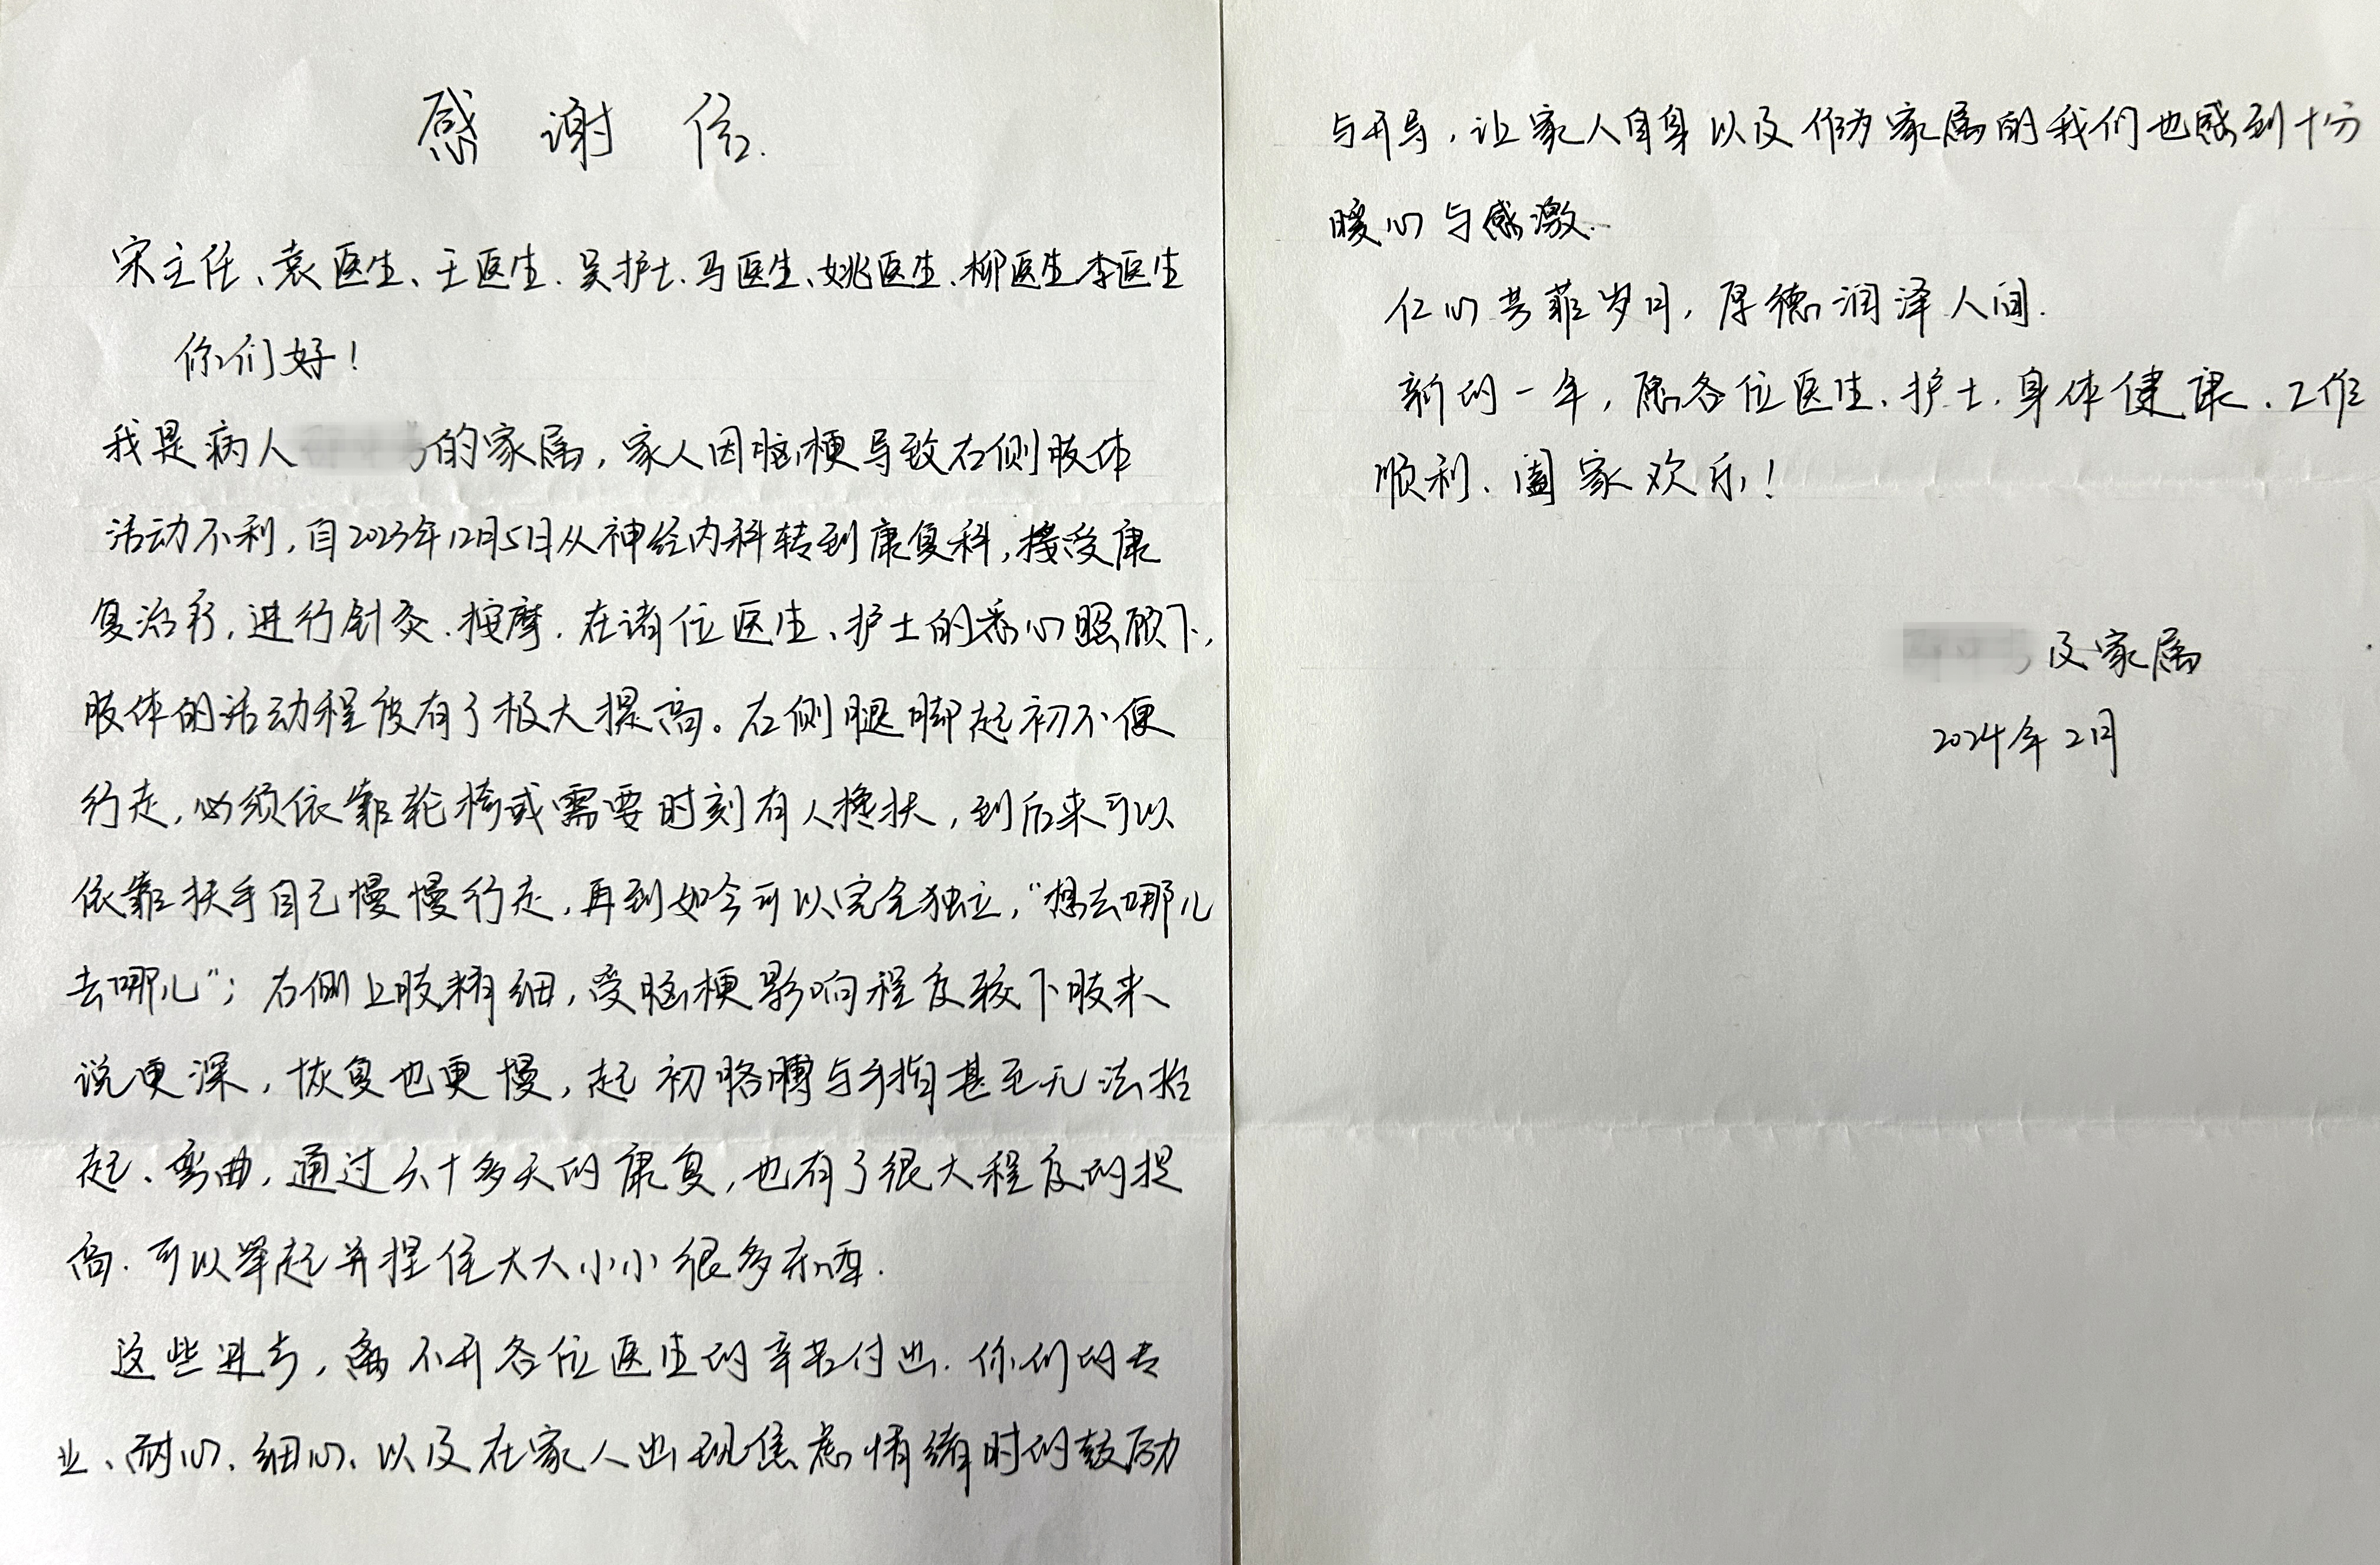 感谢信.
宋主任、袁医生、王医生.吴护士.马医生、姚医生.柳医生.李医生
你们好!
我是病人的家属,家人因脑梗导致右侧肢体
活动不利,自2023年12月5日从神经内科转到康复科,接受康
复治疗,进行针灸.按摩.在诸位医生、护士的悉心照顾下,
肢体的活动程度有了极大提高。右侧腿脚起初不便
行走,必须依靠轮椅或需要时刻有人搀扶,到后来可以
依靠扶手自己慢慢行走,再到如今可以完全独立,“想去哪儿
去哪儿”;右侧上肢精细,受脑梗影响程度较下肢来
说更深,恢复也更慢,起初胳膊与手指甚至无法抬
起、弯曲,通过六十多天的康复,也有了很大程度的提
高.可以举起并捏住大大小小很多东西.
这些进步,离不开各位医生的辛苦付出.你们的专
业、耐心、细心、以及在家人出现焦虑情绪时的鼓励
与开导,让家人自身以及作为家属的我们也感到十分
暖心与感激.
仁心芳菲岁月,厚德润泽人间.
新的一年,愿各位医生、护士.身体健康、工作
顺利、阖家欢乐!
及家属
2024年2月